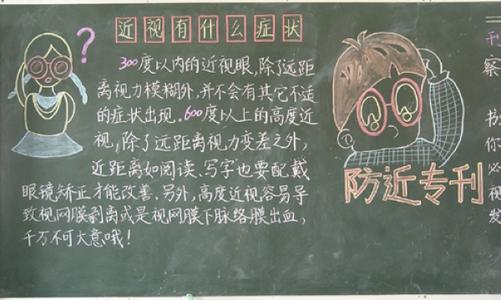 近视有什么症状
?
300度以内的近视眼,除了远距
离视力模糊外,并不会有其它不适
的症状出现。600度以上的高度近
视,除了远距离视力变差之外,
近距离如阅读、写字也要配戴
眼镜矫正才能改善。另外,高度近视容易导
致视网膜剥离或是视网膜下脉络膜出血,
千万不可大意哦!
防近专刊
察
你
必
视
发